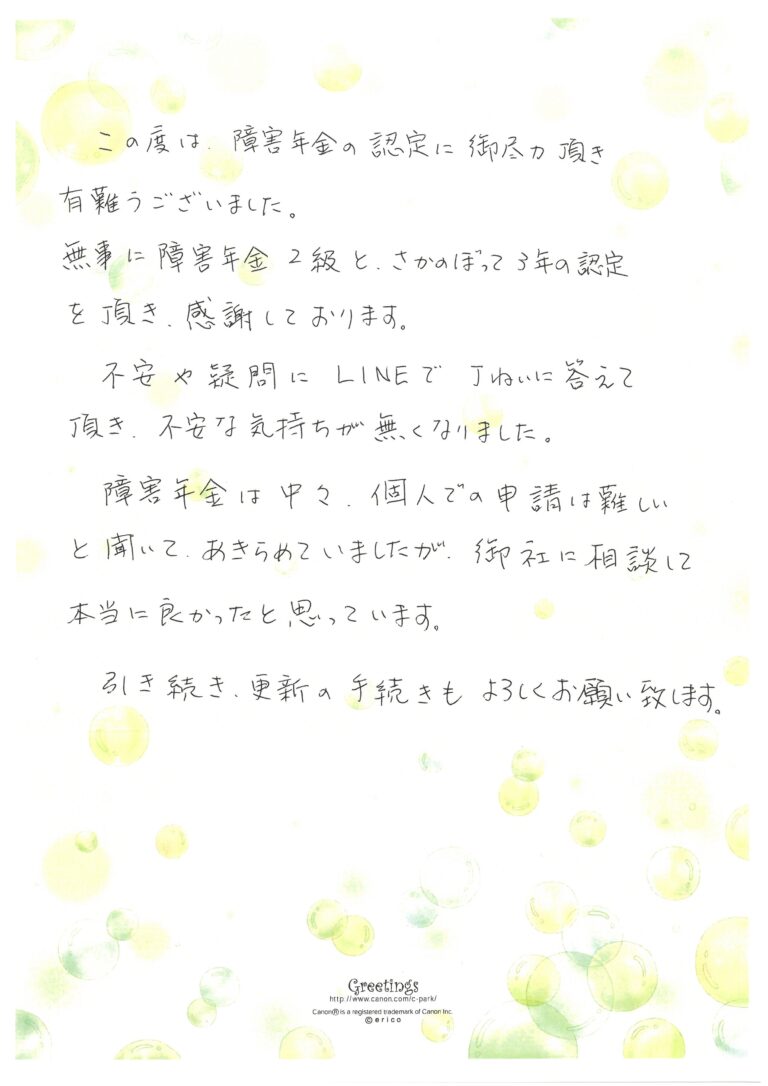 この度は、障害年金の認定に御尽力頂き
有難うございました。
無事に障害年金２級と、さかのぼって３年の認定
を頂き、感謝しております。
不安や疑問にLINEで丁ねいに答えて
頂き、不安な気持ちが無くなりました。
障害年金は中々、個人での申請は難しい
と聞いて、あきらめていましたが、御社に相談して
本当に良かったと思っています。
引き続き、更新の手続きもよろしくお願い致します。
Greetings
http://www.canon.com/c-park/
Canon® is a registered trademark of Canon Inc.
©erico